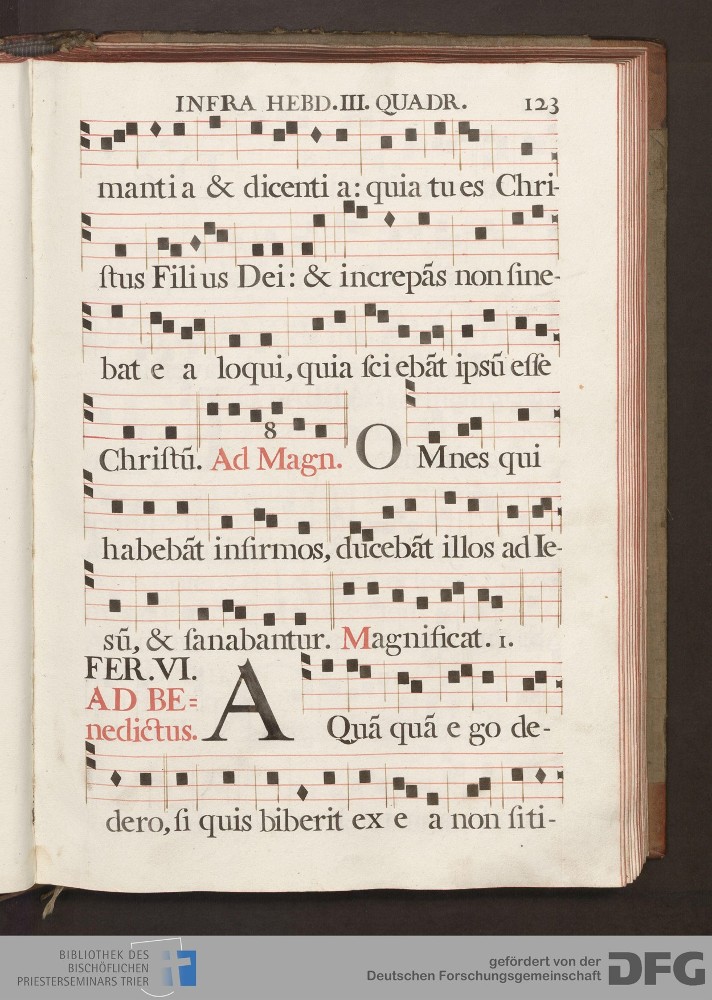 INFRA HEBD.III. QUADR. 123
mantia & dicenti a: quia tu es Chri-
ſtus Filius Dei: & increpãs non ſine-
bat e a loqui, quia ſci ebãt ipsũ eſſe
8
Chriſtũ. Ad Magn. OMnes qui
habebãt infirmos, ducebãt illos ad Ie-
sũ, & ſanabantur. Magnificat. 1.
FER.VI.
AD BE=
nedictus. AQuã quã e go de-
dero, ſi quis biberit ex e a non ſiti-
BIBLIOTHEK DES
BISCHÖFLICHEN
PRIESTERSEMINARS TRIER
gefördert von der
Deutschen Forschungsgemeinschaft DFG